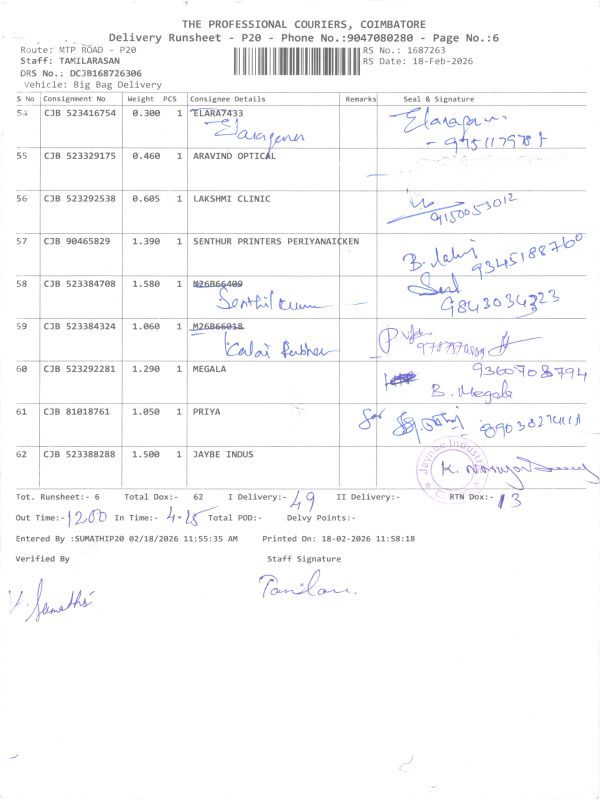 THE PROFESSIONAL COURIERS, COIMBATORE
Delivery Runsheet - P20 - Phone No.:9047080280 - Page No.:6
Route: MTP ROAD - P20 RS No.: 1687263
Staff: TAMILARASAN RS Date: 18-Feb-2026
DRS No.: DCJB168726306
Vehicle: Big Bag Delivery
S No Consignment No Weight PCS Consignee Details Remarks Seal & Signature
54 CJB 523416754 0.300 1 ELARA7433
55 CJB 523329175 0.460 1 ARAVIND OPTICAL
56 CJB 523292538 0.605 1 LAKSHMI CLINIC 9150053012
57 CJB 90465829 1.390 1 SENTHUR PRINTERS PERIYANAICKEN 9345188760
58 CJB 523384708 1.580 1 M26B66409
Senthil 9843034323
59 CJB 523384324 1.060 1 M26B66018
Kalai
60 CJB 523292281 1.290 1 MEGALA 9360708794
B. Megala
61 CJB 81018761 1.050 1 PRIYA
62 CJB 523388288 1.500 1 JAYBE INDUS
Tot. Runsheet:- 6 Total Dox:- 62 I Delivery:- 49 II Delivery:- RTN Dox:- 13
Out Time:- 12.00 In Time:- 4-15 Total POD:- Delvy Points:-
Entered By :SUMATHIP20 02/18/2026 11:55:35 AM Printed On: 18-02-2026 11:58:18
Verified By Staff Signature